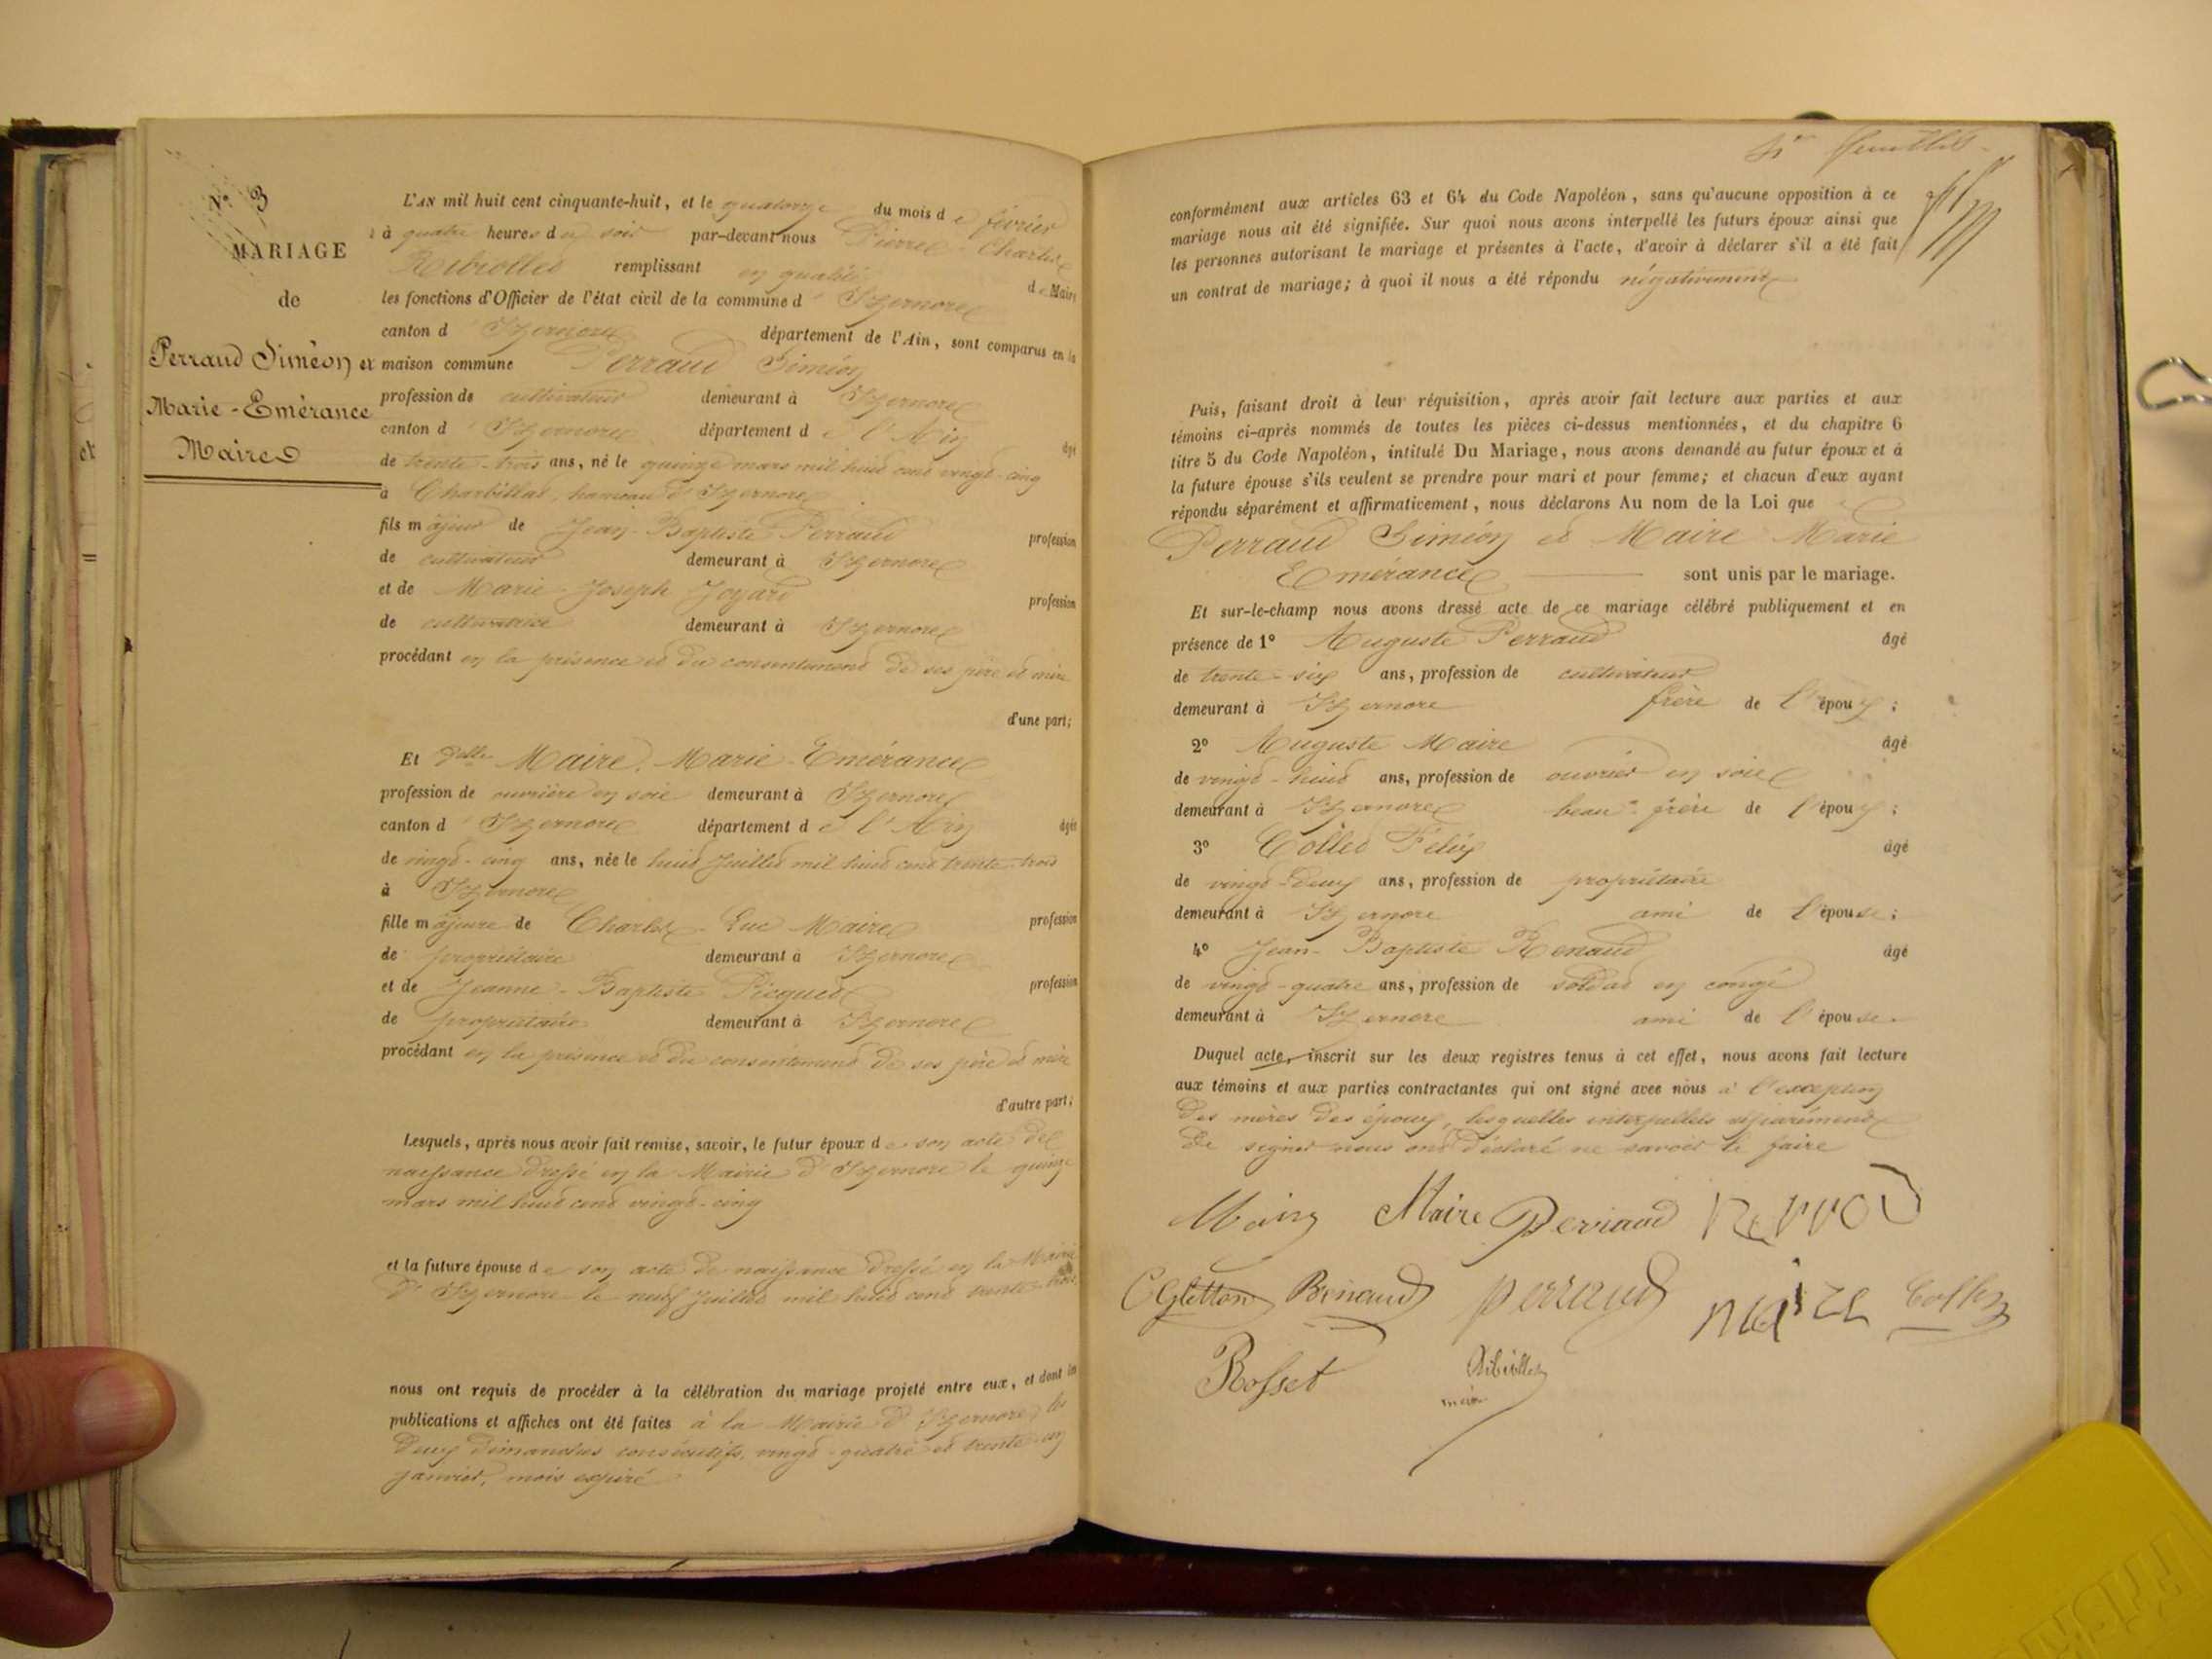 N.° 3
MARIAGE
de
Perraud Siméon et
Marie-Emérance
Maire
L'AN mil huit cent cinquante-huit, et le quatorze du mois de février
à quatre heures du soir par-devant nous Pierre Charles
Ribiollet remplissant en qualité de Maire
les fonctions d'Officier de l'état civil de la commune d'Izernore
canton d'Izernore département de l'Ain, sont comparus en la
maison commune Perraud Siméon
profession de cultivateur demeurant à Izernore
canton d'Izernore département de l'Ain âgé
de trente-trois ans, né le quinze mars mil huit cent vingt-cinq
à Charbillat, hameau d'Izernore
fils majeur de Jean-Baptiste Perraud profession
de cultivateur demeurant à Izernore
et de Marie-Joseph Joyard profession
de cultivatrice demeurant à Izernore
procédant en la présence et du consentement de ses père et mère
d'une part;
Et Delle Maire, Marie-Emérance
profession de ouvrière en soie demeurant à Izernore
canton d'Izernore département de l'Ain âgée
de vingt-cinq ans, née le huit Juillet mil huit cent trente-trois
à Izernore
fille majeure de Charles-Luc Maire profession
de propriétaire demeurant à Izernore
et de Jeanne-Baptiste Picquet profession
de propriétaire demeurant à Izernore
procédant en la présence et du consentement de ses père et mère
d'autre part;
Lesquels, après nous avoir fait remise, savoir, le futur époux de son acte de
naissance dressé en la Mairie d'Izernore le quinze
mars mil huit cent vingt-cinq
et la future épouse de son acte de naissance dressé en la Mairie
d'Izernore le neuf Juillet mil huit cent trente-trois
nous ont requis de procéder à la célébration du mariage projeté entre eux, et dont les
publications et affiches ont été faites à la Mairie d'Izernore, les
deux dimanches consécutifs, vingt-quatre et trente-un
janvier, mois expiré
conformément aux articles 63 et 64 du Code Napoléon, sans qu'aucune opposition à ce
mariage nous ait été signifiée. Sur quoi nous avons interpellé les futurs époux ainsi que
les personnes autorisant le mariage et présentes à l'acte, d'avoir à déclarer s'il a été fait
un contrat de mariage; à quoi il nous a été répondu négativement
Puis, faisant droit à leur réquisition, après avoir fait lecture aux parties et aux
témoins ci-après nommés de toutes les pièces ci-dessus mentionnées, et du chapitre 6
titre 5 du Code Napoléon, intitulé Du Mariage, nous avons demandé au futur époux et à
la future épouse s'ils veulent se prendre pour mari et pour femme; et chacun d'eux ayant
répondu séparément et affirmativement, nous déclarons Au nom de la Loi que
Perraud Siméon et Maire Marie
Emérance sont unis par le mariage.
Et sur-le-champ nous avons dressé acte de ce mariage célébré publiquement et en
présence de 1° Auguste Perraud âgé
de trente-six ans, profession de cultivateur
demeurant à Izernore frère de l'époux;
2° Auguste Maire âgé
de vingt-huit ans, profession de ouvrier en soie
demeurant à Izernore beau-frère de l'époux;
3° Collet Félix âgé
de vingt-deux ans, profession de propriétaire
demeurant à Izernore ami de l'épouse;
4° Jean-Baptiste Renaud âgé
de vingt-quatre ans, profession de soldat en congé
demeurant à Izernore ami de l'épouse.
Duquel acte, inscrit sur les deux registres tenus à cet effet, nous avons fait lecture
aux témoins et aux parties contractantes qui ont signé avec nous à l'exception
des mères des époux, lesquelles interpellées séparément
de signer nous ont déclaré ne savoir le faire
Maire Perraud
Renaud Perraud Maire Collet
Rosset Ribiollet
maire